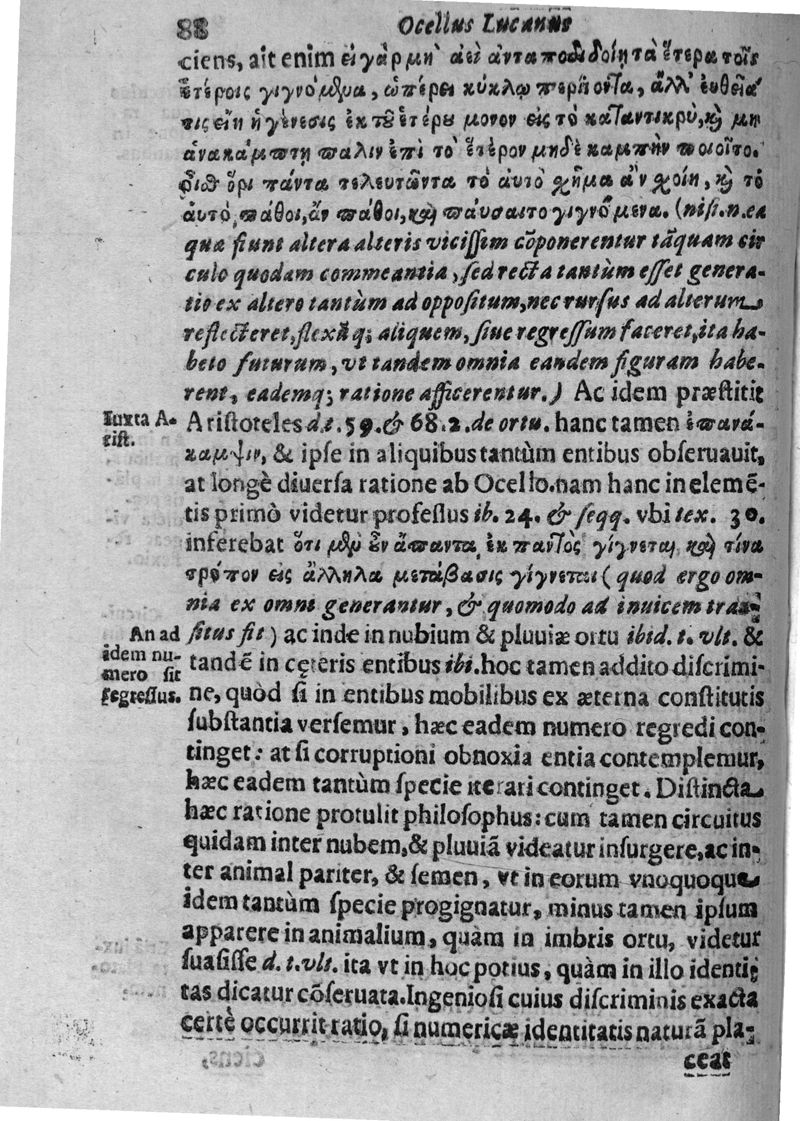 88
Ocellus Lucanus
ciens, ait enim εἰ γὰρ μὴ ἀεὶ ἀνταποδιδοίη τὰ ἕτερα τοῖς
ἑτέροις γιγνόμϑνα, ὡπέρει κύκλῳ περιϊόντα, ἀλλ' ἐυθεῖα
τις εἴη ἡ γένεσις ἐκ τοῦ ἑτέρου μονον εἰς τὸ καταντικρὺ, καὶ μὴ
ἀνακάμπτῃ παλιν ἐπὶ τὸ ἕτερον μηδὲ καμπὴν ποιοῖτο.
οἶσθ ὅρι πάντα τελευτῶντα τὸ αυτὸ χῆμα ἂν χοίη, καὶ τὸ
αὐτὸ πάθοι, ἂν πάθοι, καὶ παύσαιτο γιγνόμενα. (nisi.n.ea
quæ fiunt altera alteris vicissim cõponerentur tãquam cir
culo quodam commeantia, sed recta tantùm esset genera-
tio ex altero tantùm ad oppositum, nec rursus ad alterum
reflecteret, flexũq; aliquem, siue regressum faceret, ita ha-
beto futurum, vt tandem omnia eandem figuram habe-
rent, eademq; ratione afficerentur.) Ac idem præstitit
Iuxta A-
rist.
Aristoteles d.t. 59. & 68. 2. de ortu. hanc tamen ἐπανά-
καμψιν, & ipse in aliquibus tantùm entibus obseruauit,
at longè diuersa ratione ab Ocello. nam hanc in elemẽ-
tis primò videtur professus ib. 24. & seqq. vbi tex. 30.
inferebat ὅτι μϑν οὖν ἅπαντα ἐκ παντὸς γίγνεται, καὶ τίνα
τρόπον εἰς ἄλληλα μετάβασις γίγνεται (quod ergo om-
nia ex omni generantur, & quomodo ad inuicem tran
An ad
idem nu-
mero sit
regressus.
situs fit) ac inde in nubium & pluuiæ ortu ibid. t. vlt. &
tandẽ in cęteris entibus ibi. hoc tamen addito discrimi-
ne, quòd si in entibus mobilibus ex æterna constitutis
substantia versemur, hæc eadem numero regredi con-
tinget: at si corruptioni obnoxia entia contemplemur,
hæc eadem tantùm specie iterari continget. Distincta
hæc ratione protulit philosophus: cum tamen circuitus
quidam inter nubem, & pluuiã videatur insurgere, ac in-
ter animal pariter, & semen, vt in eorum vnoquoque
idem tantùm specie progignatur, minus tamen ipsum
apparere in animalium, quàm in imbris ortu, videtur
suasisse d. t. vlt. ita vt in hoc potius, quàm in illo identi
tas dicatur cõseruata. Ingeniosi cuius discriminis exacta
certè occurrit ratio, si numericæ identitatis naturã pla-
ceat